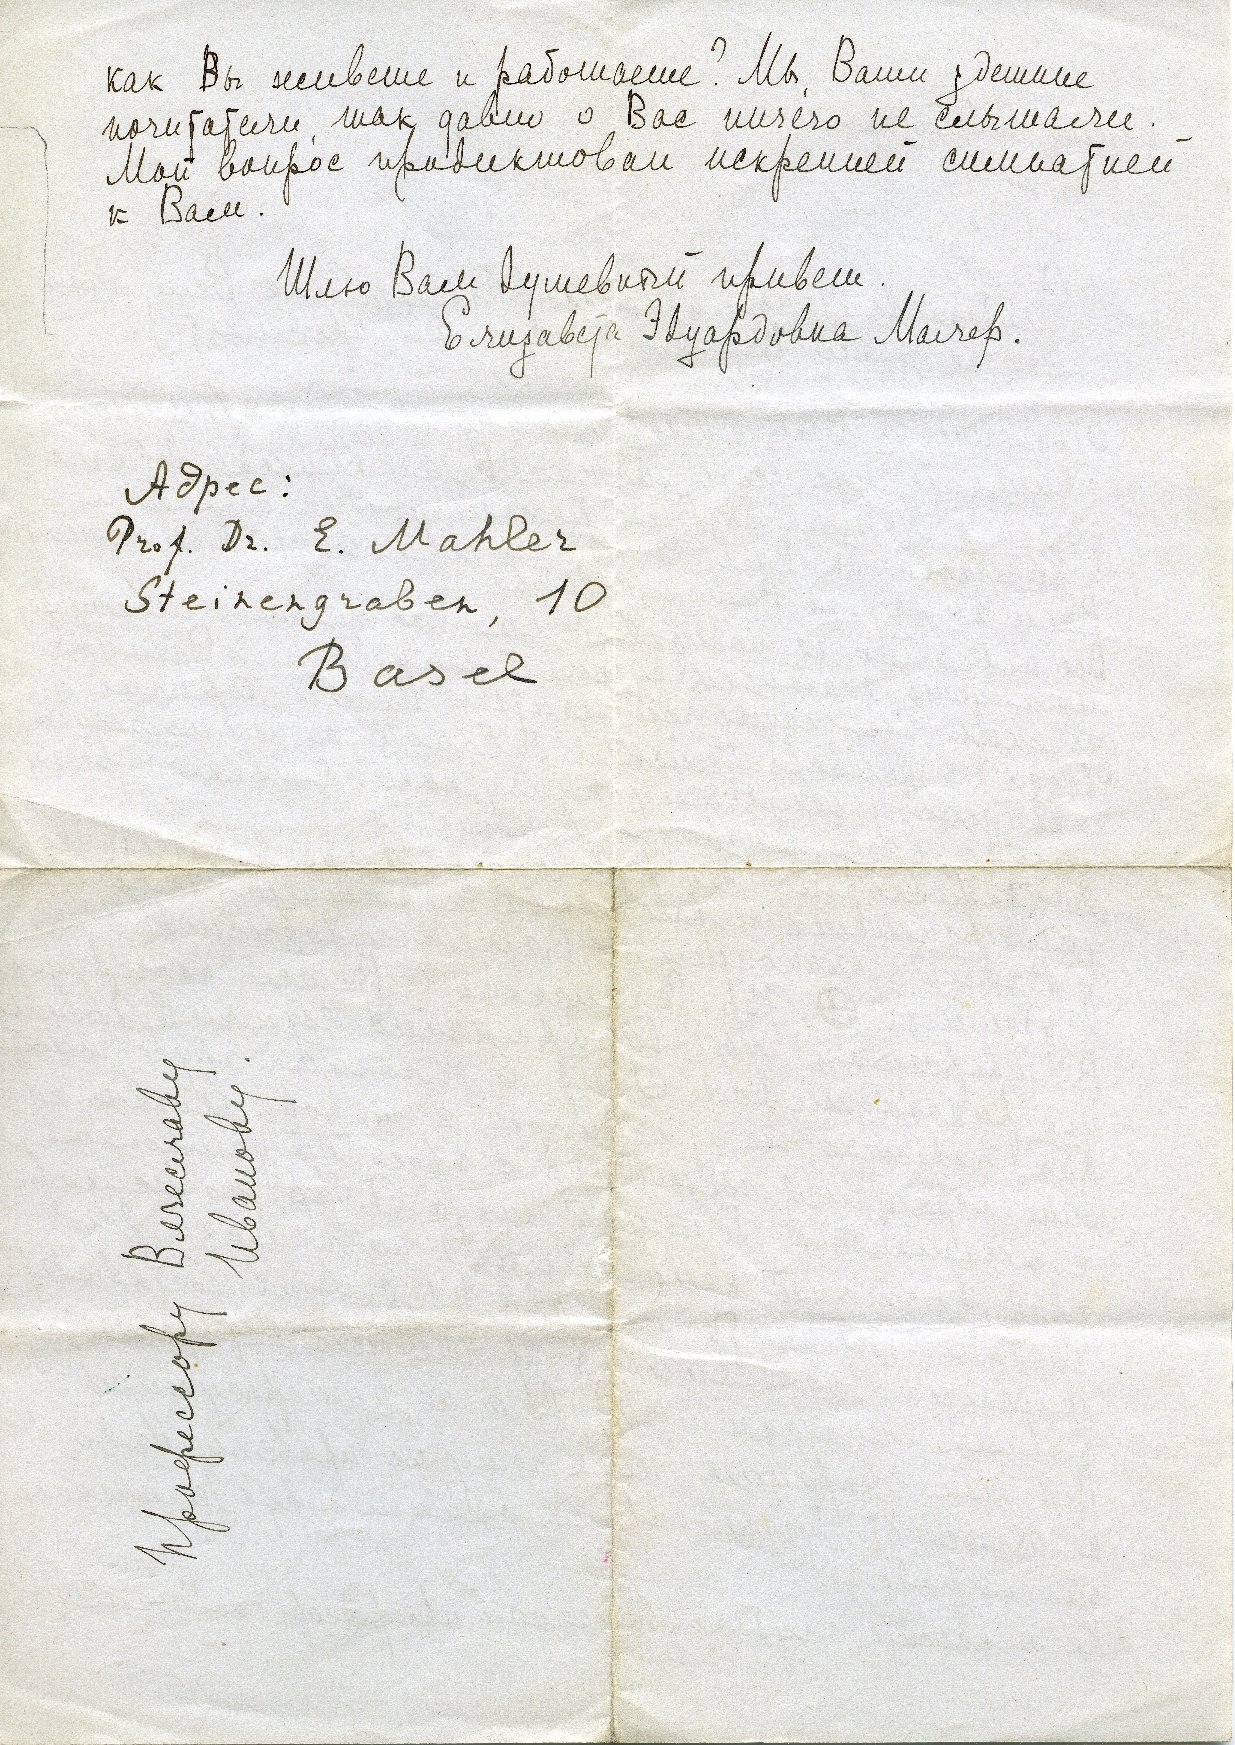 как Вы живете и работаете? Мы, Ваши здешние
почитатели, так давно о Вас ничего не слышали.
Мой вопрос продиктован искренней симпатией
к Вам.
Шлю Вам душевный привет.
Елизавета Эдуардовна Малер.
Адрес:
Prof. Dr. E. Mahler
Steinengraben, 10
Basel
Профессору Вячеславу
Иванову.